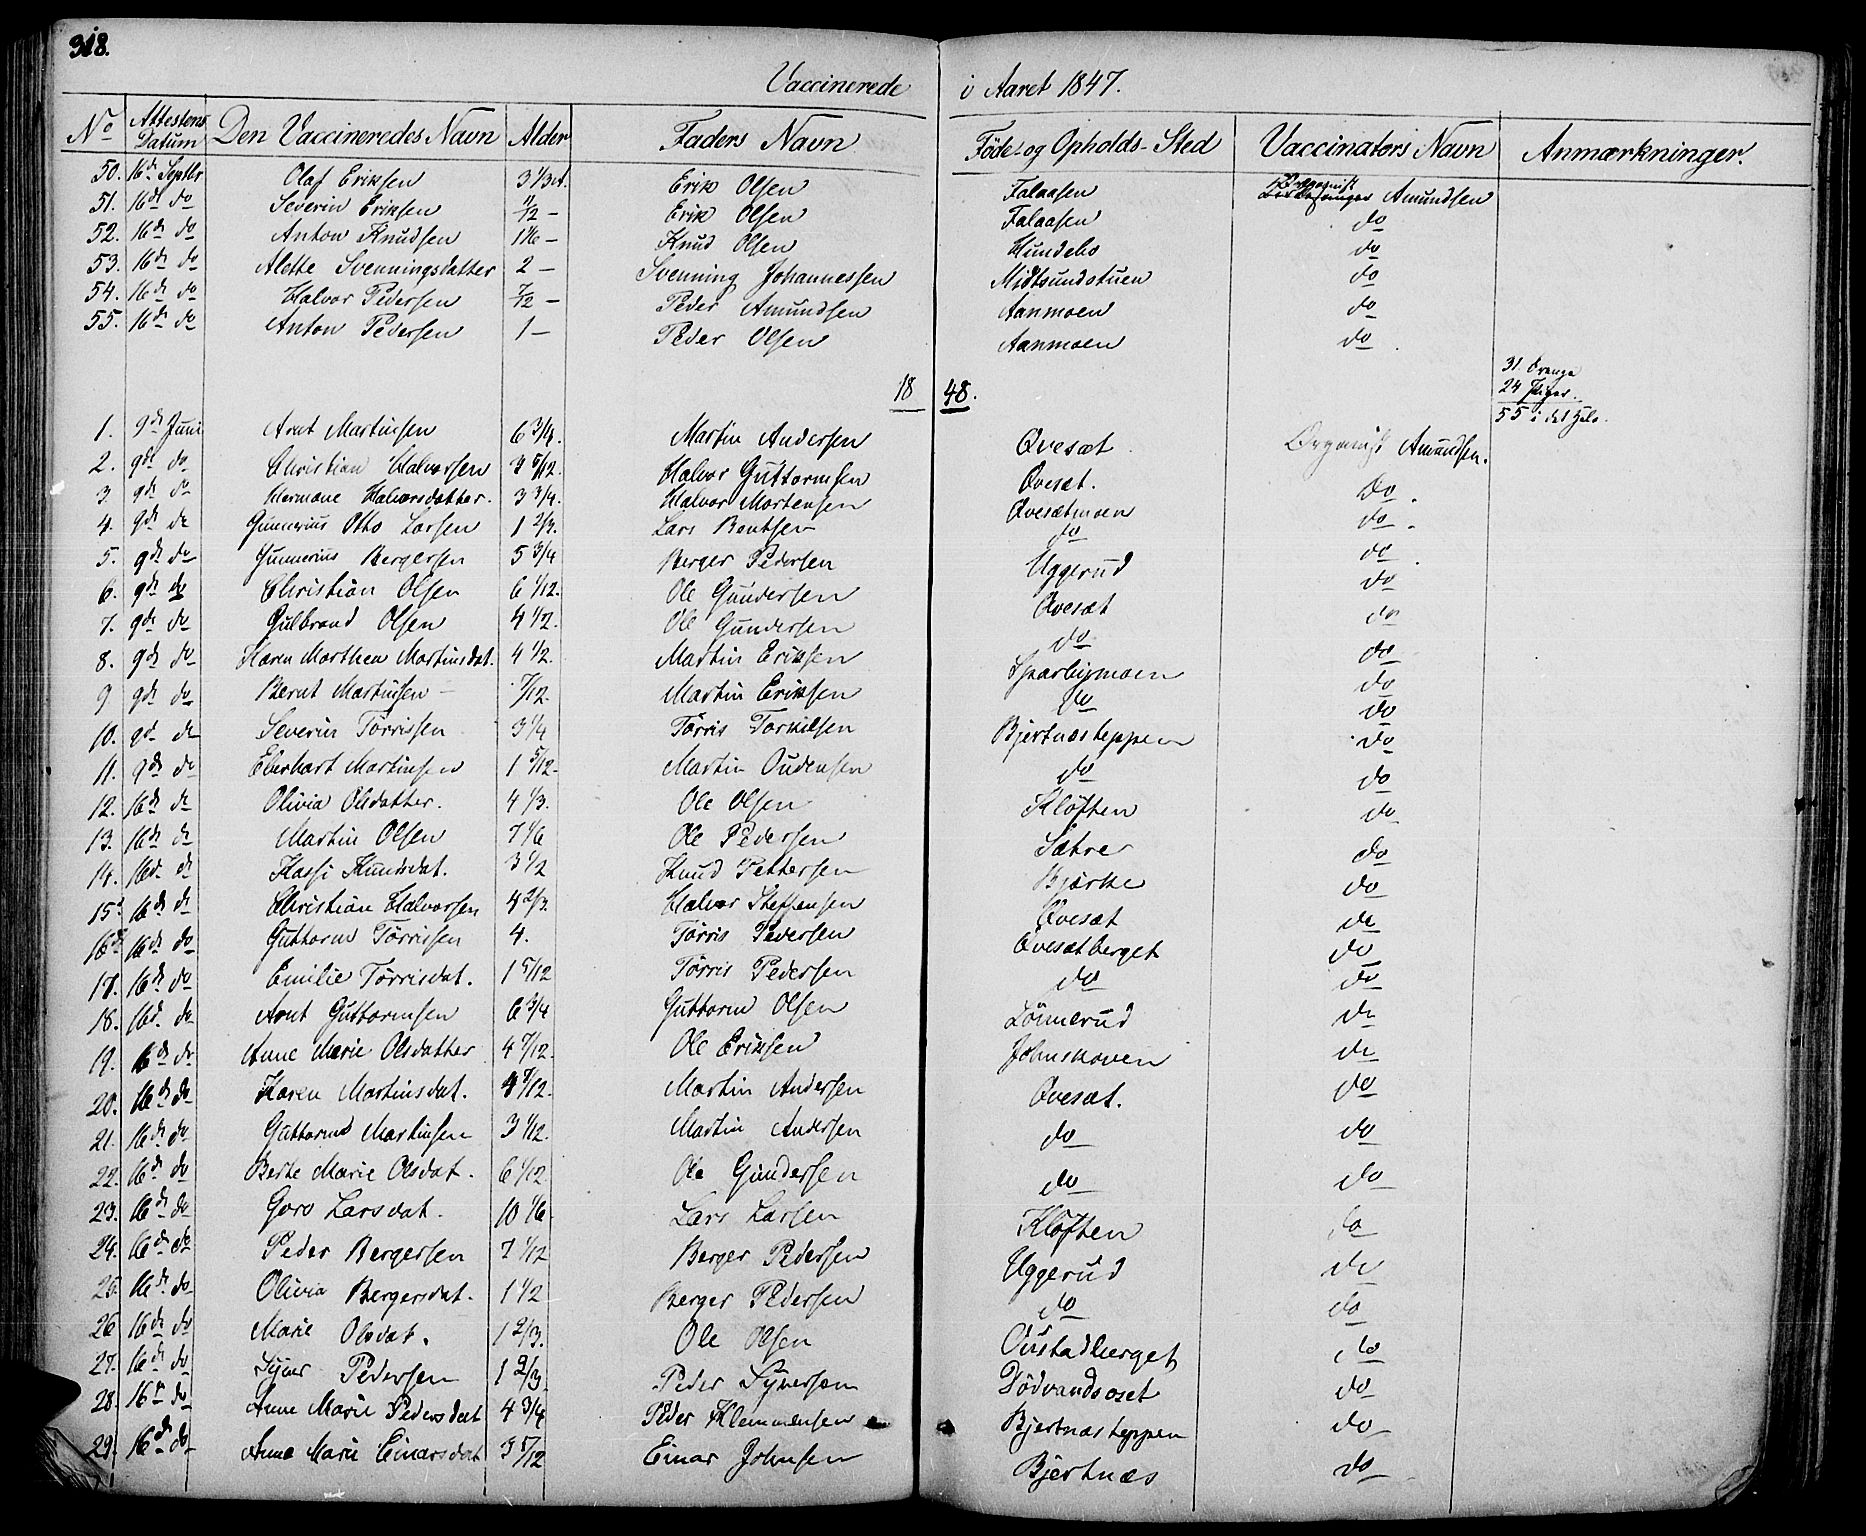 318.
Vaccinerede i Aaret 1847.
No | Attestens Datum | Den Vaccineredes Navn | Alder | Faders Navn | Føde- og Opholds-Sted | Vaccinators Navn | Anmærkninger.
50. | 16de Septbr | Olaf Eriksen | 3 1/3 A. | Erik Olsen | Falaasen | Organist Amundsen
51. | 16de do | Severin Eriksen | 11/12 – | Erik Olsen | Falaasen | do
52. | 16de do | Anton Knudsen | 1 1/6 – | Knud Olsen | Hundebo | do
53. | 16de do | Alette Svenningsdatter | 2 – | Svenning Johannessen | Midtsundstuen | do
54. | 16de do | Halvor Pedersen | 7/12 – | Peder Amundsen | Aanmoen | do
55. | 16de do | Anton Pedersen | 1 – | Peder Olsen | Aanmoen | do
31 Drenge
24 Piger.
55 i det Hele.
1848.
1. | 9de Juni | Arnt Martinsen | 6 3/4. | Martin Andersen | Qvesæt | Organist Amundsen.
2. | 9de do | Christian Halvorsen | 3 5/12. | Halvor Guttormsen | Qvesæt. | do
3. | 9de do | Hermane Halvorsdatter. | 3 3/4. | Halvor Mortensen | Qvesætmoen | do
4. | 9de do | Gunnerius Otto Larsen | 1 2/3. | Lars Bentsen | do | do
5. | 9de do | Gunnerius Bergersen | 5 3/4 | Berger Pedersen | Uggerud | do
6. | 9de do | Christian Olsen | 6 1/12. | Ole Gundersen | Qvesæt | do
7. | 9de do | Gulbrand Olsen | 4 1/2. | Ole Gundersen | do | do
8. | 9de do | Karen Marthea Martinsdat. | 4 1/2. | Martin Eriksen | Sparbymoen | do
9 | 9de do | Bernt Martinsen | 7/12. | Martin Eriksen | do | do
10. | 9de do | Severin Törrissen | 3 1/4 | Törris Torkilsen | Bjertnæsteppen | do
11. | 9de do | Eberhart Martinsen | 1 5/12. | Martin Oudensen | do | do
12. | 16de do | Olivia Olsdatter. | 4 1/3. | Ole Olsen | Klöften | do
13. | 16de do | Martin Olsen | 7 1/6 | Ole Pedersen | Sætre | do
14. | 16de do | Kassi Knudsdat. | 3 1/2 | Knud Pettersen | Bjørke | do
15. | 16de do | Christian Halvorsen | 4 2/3. | Halvor Steffensen | Qvesæt | do
16. | 16de do | Guttorm Törrissen | 4. | Törris Pedersen | Qvesætberget | do
17. | 16de do | Emilie Törrisdat. | 1 5/12 | Törris Pedersen | do | do
18. | 16de do | Arnt Guttormsen | 6 3/4 | Guttorm Olsen | Lönnerud | do
19. | 16de do | Anne Marie Olsdatter | 4 7/12. | Ole Eriksen | Johnskoven | do
20. | 16de do | Karen Martinsdat. | 4 7/12. | Martin Andersen | Qvesæt. | do
21. | 16de do | Guttorm Martinsen | 3 1/12. | Martin Andersen | do | do
22. | 16de do | Berte Marie Olsdat. | 6 1/12. | Ole Gundersen | do | do
23. | 16de do | Goro Larsdat. | 10 1/6. | Lars Larsen | Klöften | do
24. | 16de do | Peder Bergersen | 7 1/12 | Berger Pedersen | Uggerud | do
25. | 16de do | Olivia Bergersdat. | 1 1/2 | Berger Pedersen | do | do
26 | 16de do | Marie Olsdat. | 1 2/3. | Ole Olsen | Oustadberget | do
27. | 16de do | Syver Pedersen | 1 2/3. | Peder Syversen | Dödvandsoset | do
28. | 16de do | Anne Marie Pedersdat | 4 3/4 | Peder Klemmensen | Bjertnæsteppen | do
29. | 16de do | Anne Marie Einarsdat | 3 5/12 | Einar Johnsen | Bjertnæs | do